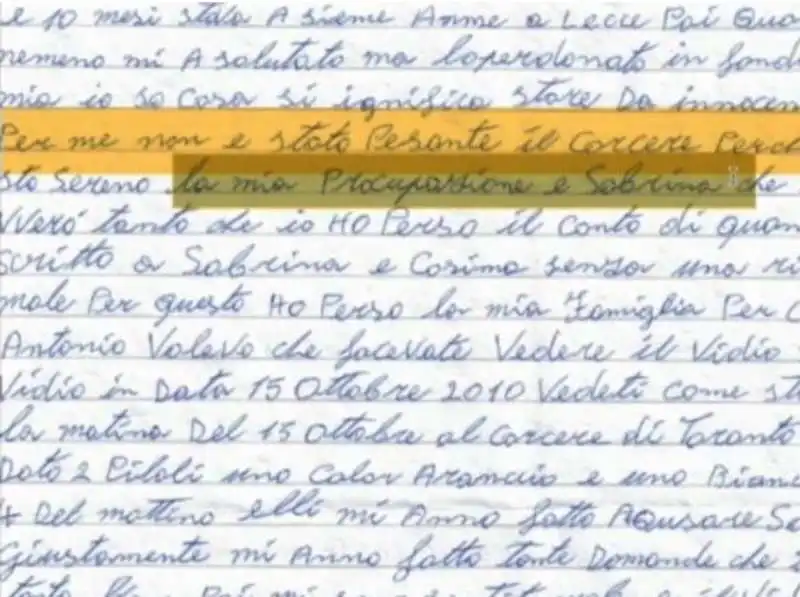 e 10 mesi stava A sieme Anme a Lecce Poi Qua
nemeno mi A salutato ma loperdonato in fond
mia io so Cosa si ignifica stare Da innocen
Per me non e stato Pesante il Carcere Perch
sto Sereno la mia Procupazione e Sabrina che
VVero tanto che io HO Perso il Conto di quan
scritto a Sabrina e Cosima senza una ri
male Per questo HO Perso la mia Famiglia Per C
Antonio Volevo che facevate Vedere il Vidio
Vidio in Data 15 Ottobre 2010 Vedeti Come st
la matina Del 15 Ottobre al Carcere di Taranto
Dato 2 Piloli uno Color Arancio e uno Bianc
4 Del mattino elli mi Anno fatto AQusare Sa
Giustamente mi Anno fatto tante Domande che